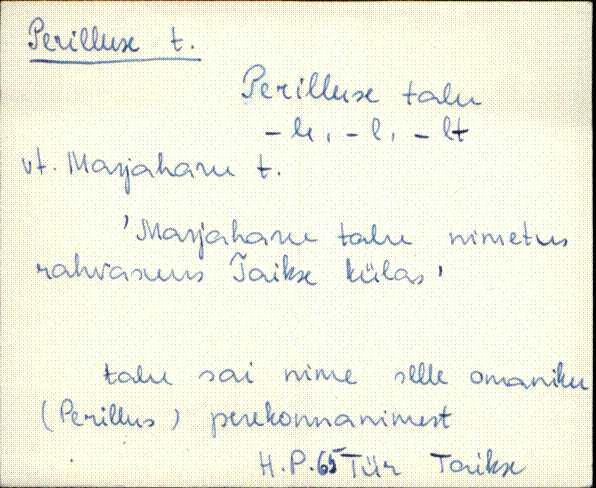 Perilluse t.
Perilluse talu
-le, -l, -lt
vt. Marjaharu t.
'Marjaharu talu nimetus
rahvasuus Taikse külas'
talu sai nime selle omaniku
(Perillus) perekonnanimest
H.P. 65 Tür Taikse